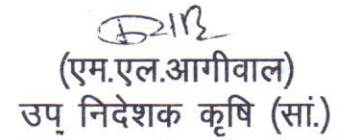 (एम.एल.आगीवाल)
उप निदेशक कृषि (सां.)